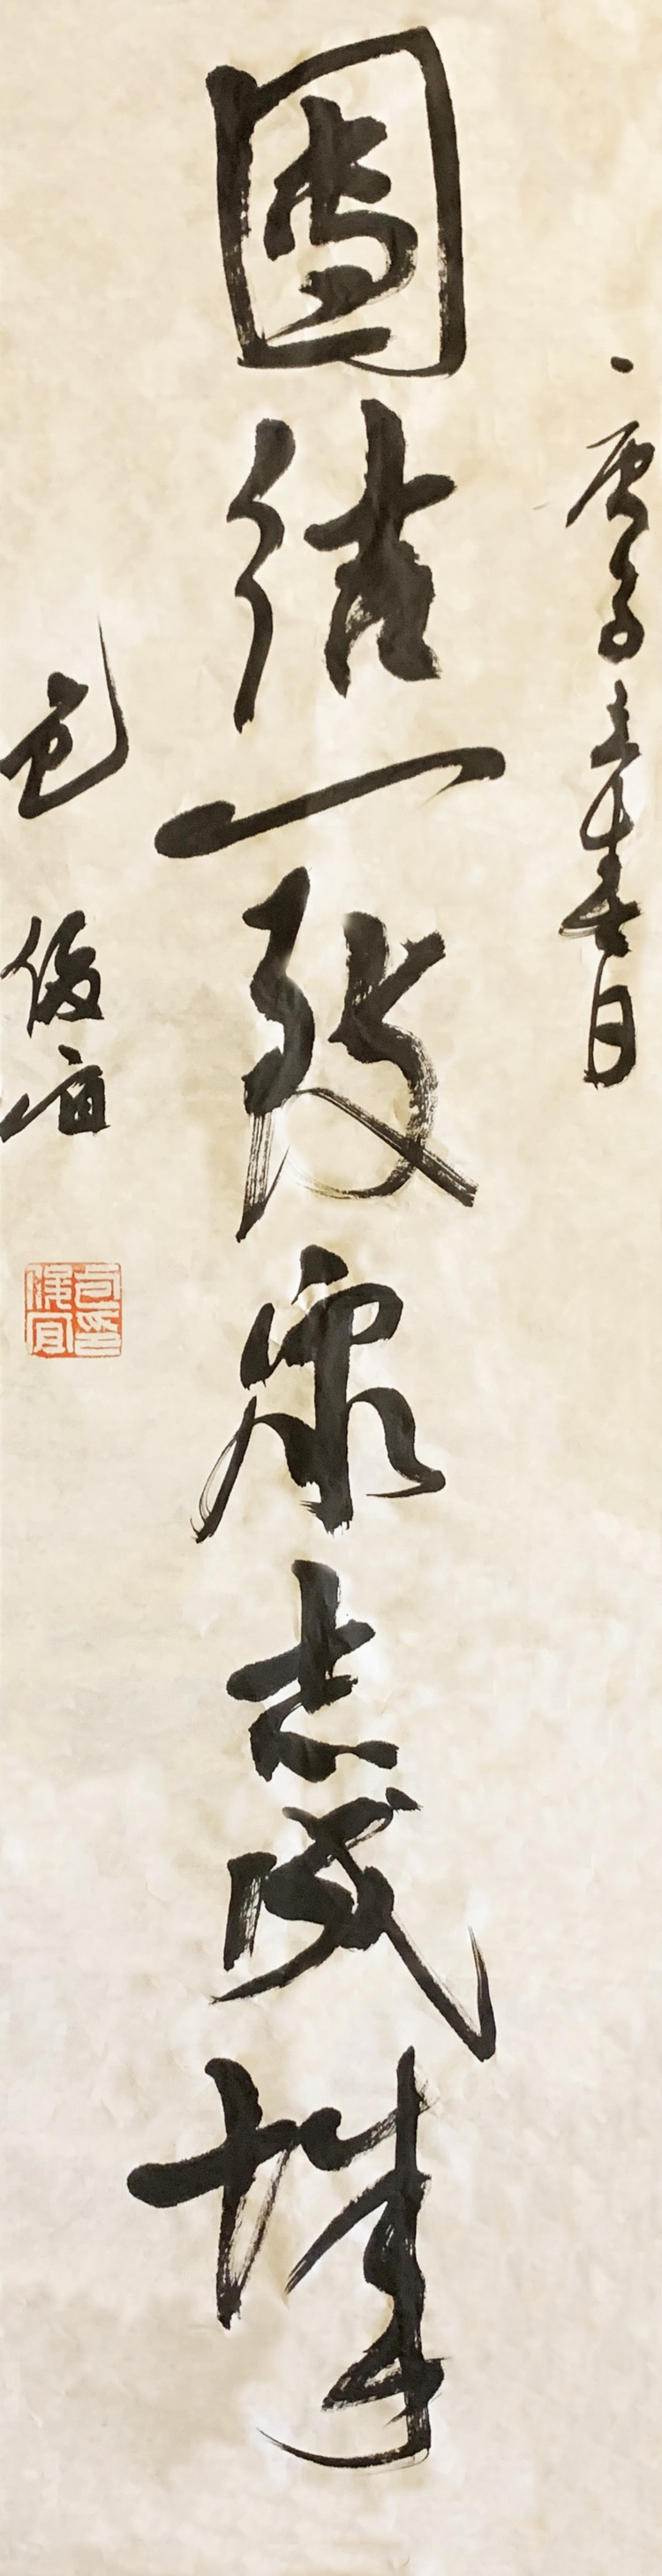 庚子春月
團結一致衆志成城
包俊宜
包印
俊宜